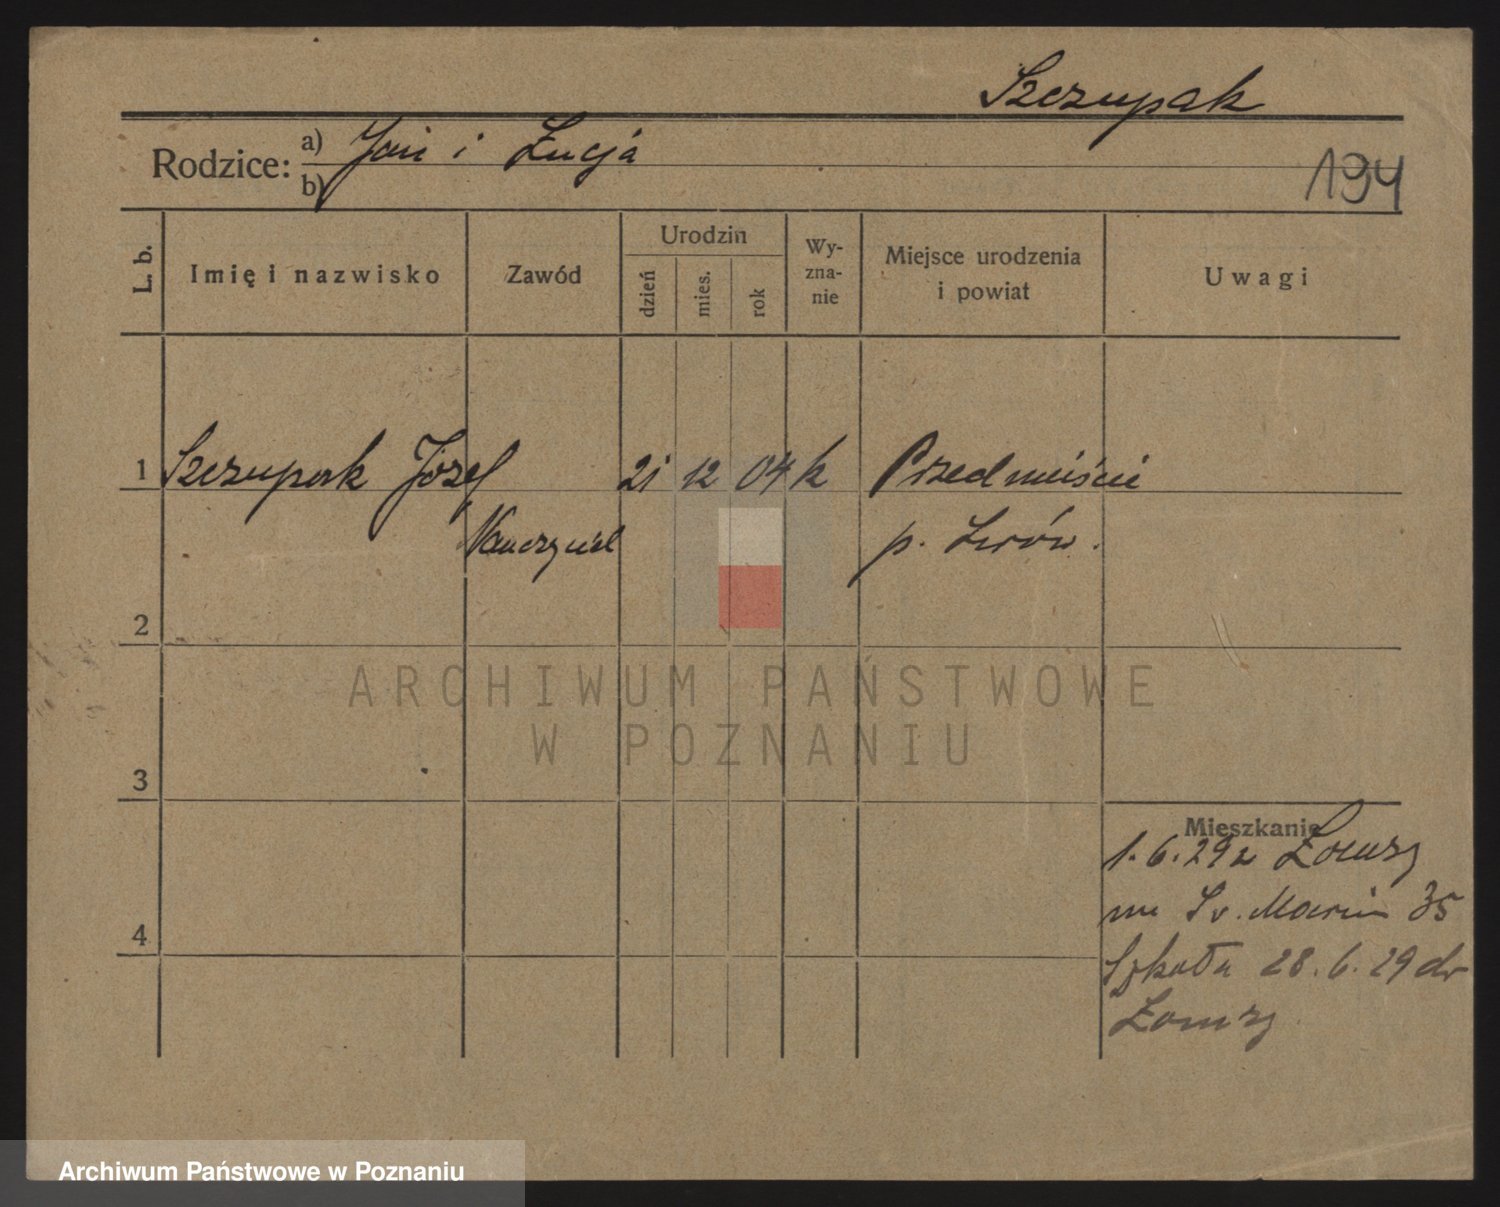 Szczupak
Rodzice: a) Jan i Łucja
b)
194
L. b.
Imię i nazwisko
Zawód
Urodzin
dzień
mies.
rok
Wy-
zna-
nie
Miejsce urodzenia
i powiat
Uwagi
1 Szczupak Józef 21 12 04 k Przedmieście
Nauczyciel p. Lwów.
2
ARCHIWUM PAŃSTWOWE
W POZNANIU
3
Mieszkanie
1.6.29 z Łomży
Św. Marcin 35
Szkoła 28.6.29 do
Łomży
4
Archiwum Państwowe w Poznaniu